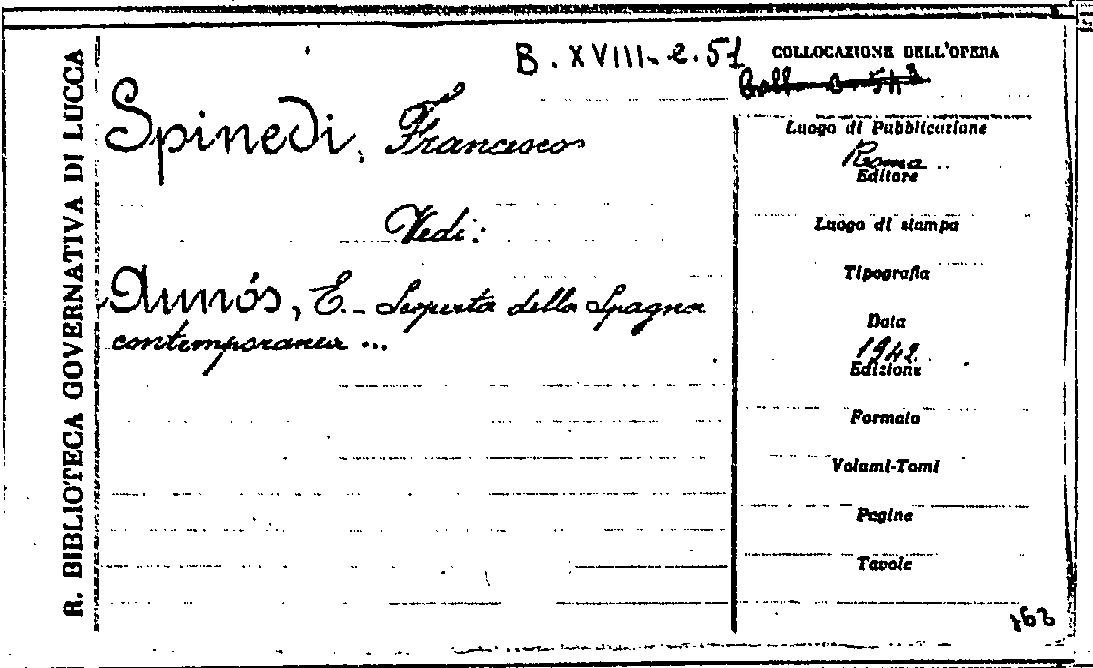 R. BIBLIOTECA GOVERNATIVA DI LUCCA
B. XVIII. e. 51
COLLOCAZIONE DELL'OPERA
Spinedi, Francesco
Vedi:
Aunós, E. - Scoperta della Spagna
contemporanea ...
Luogo di Pubblicazione
Roma
Editore
Luogo di stampa
Tipografia
Data
1942
Edizione
Formato
Volumi-Tomi
Pagine
Tavole